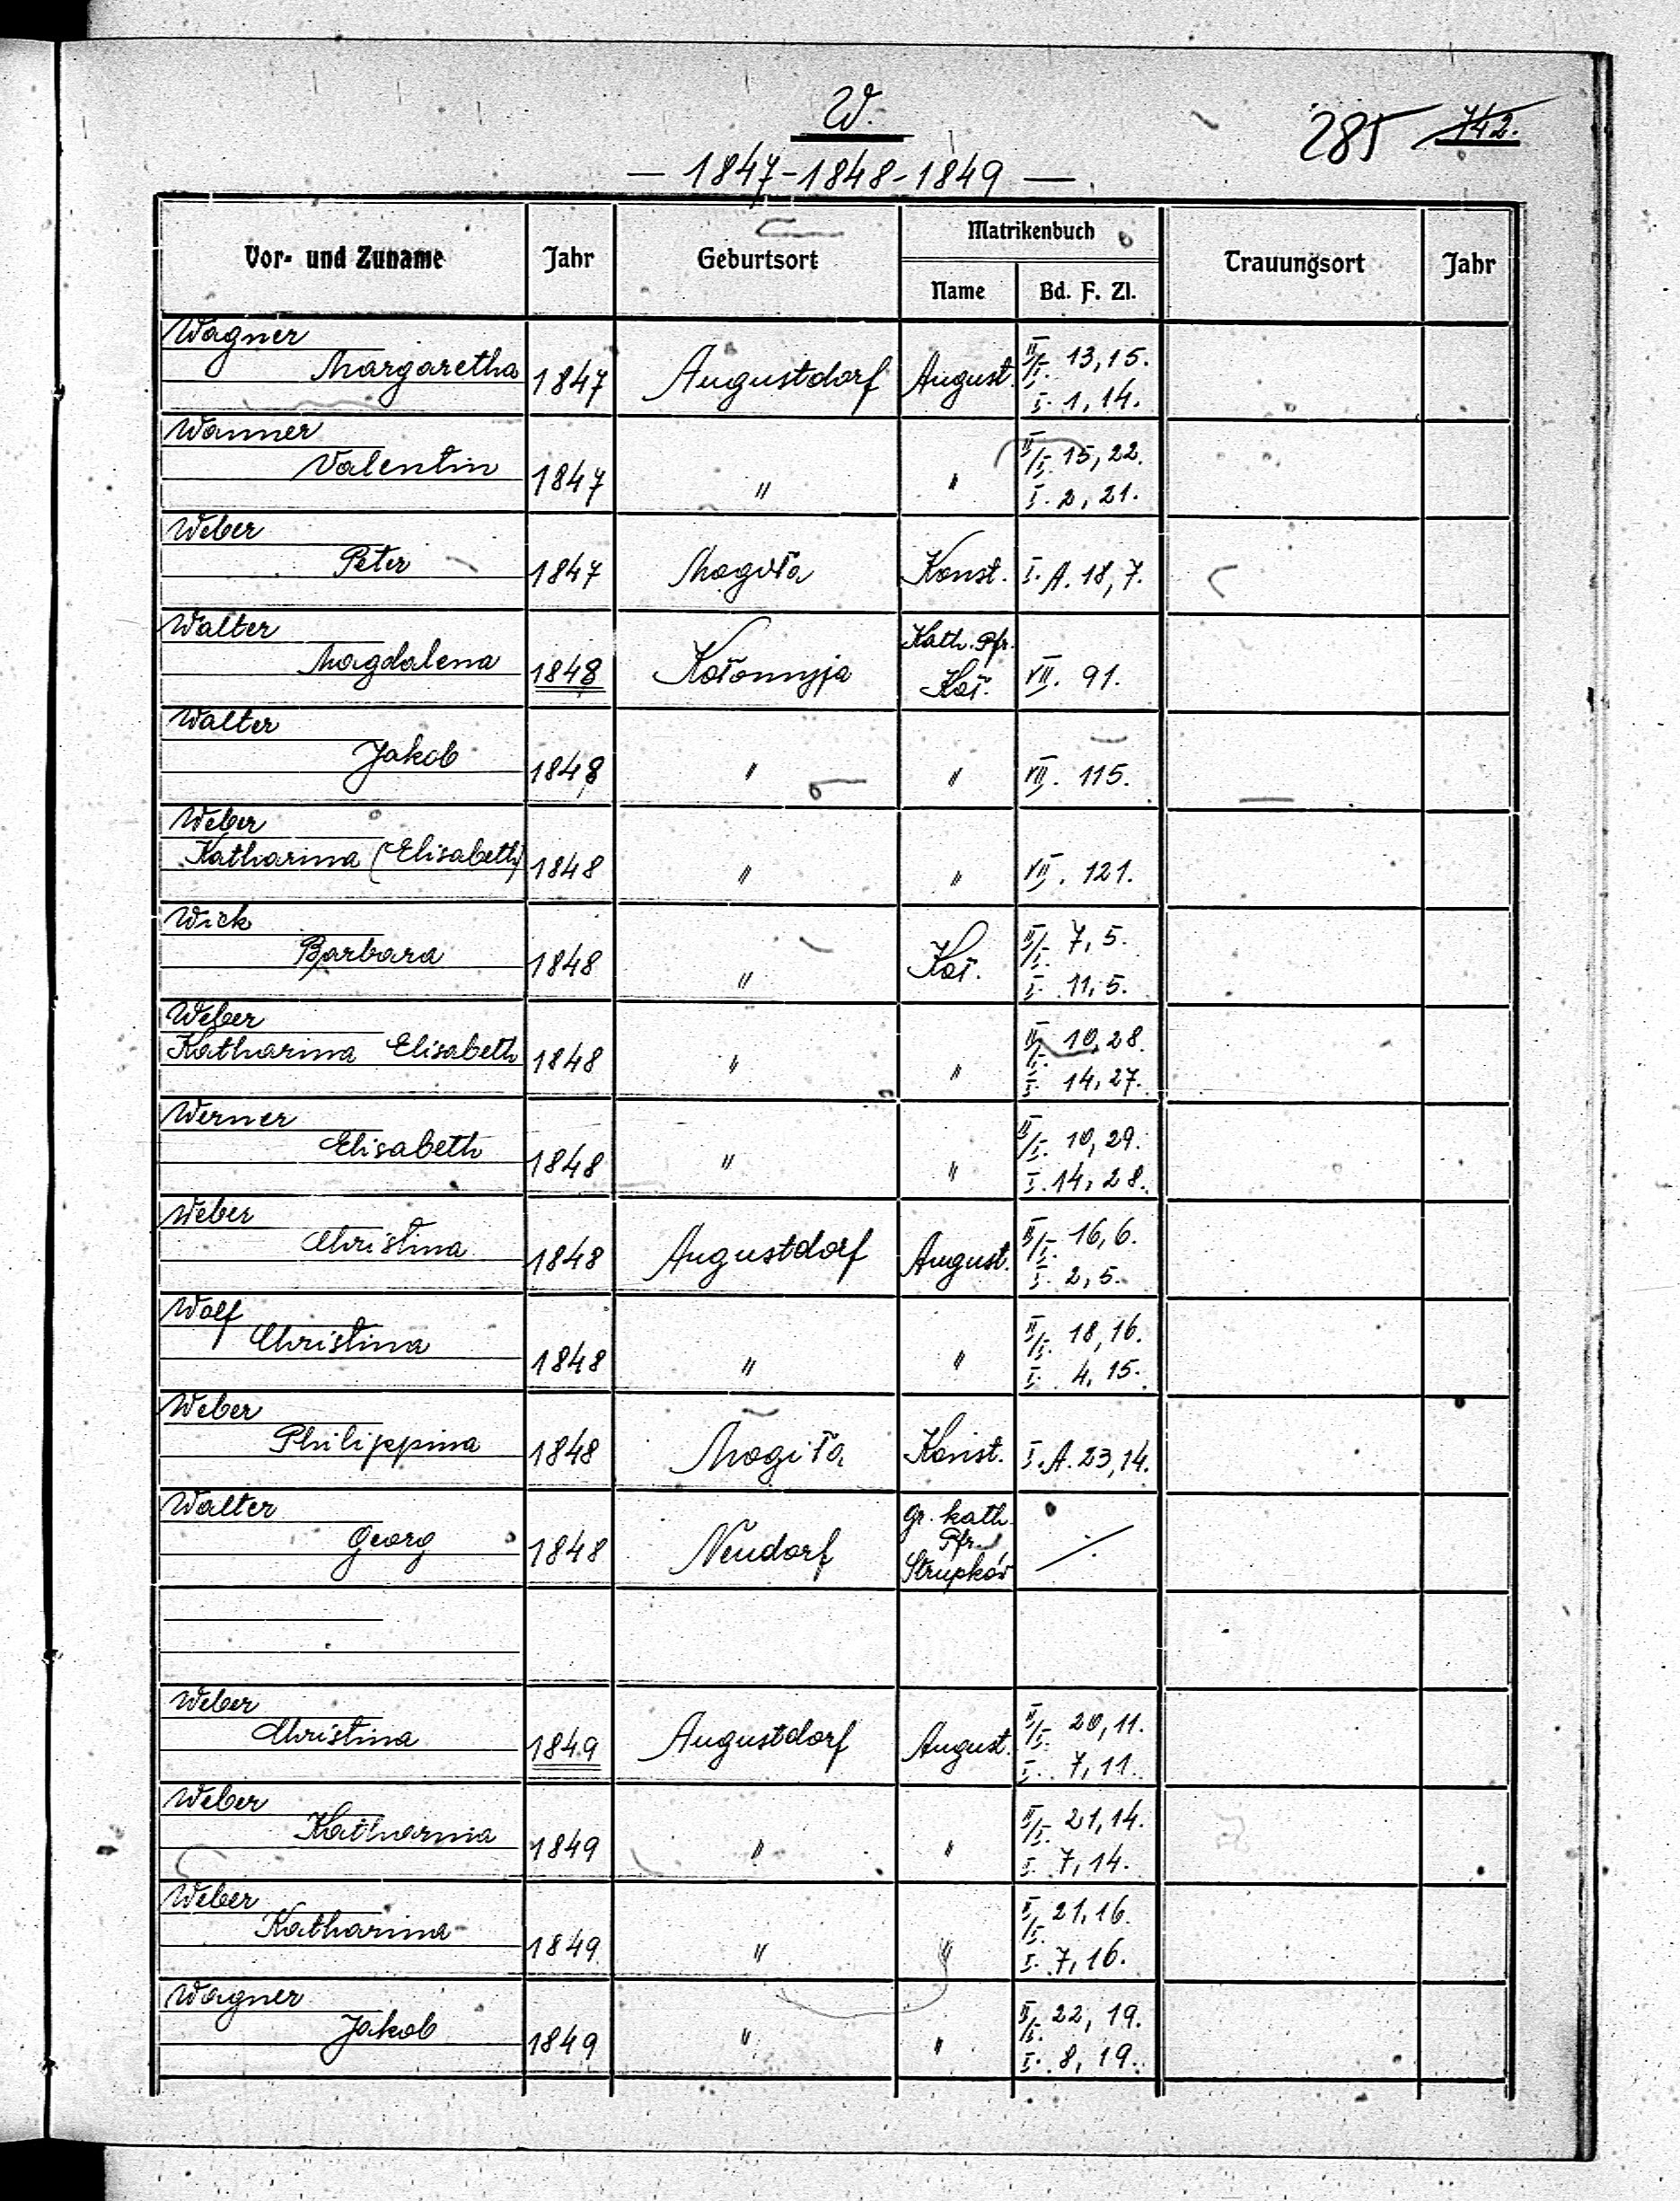 W.
285 742.
— 1847-1848-1849 —
Vor- und Zuname Jahr Geburtsort Matrikenbuch Trauungsort Jahr
Name Bd. F. Zl.
Wagner
Margaretha 1847 Augustdorf August. II/I. 13,15.
I. 1,14.
Wanner
Valentin 1847 " " II/I. 15,22.
I. 2,21.
Weber
Peter 1847 Mogiła Konst. I. A. 18,7.
Walter
Magdalena 1848 Kołomyja Kath. Pfr. Koł. VII. 91.
Walter
Jakob 1848 " " VII. 115.
Weber
Katharina (Elisabeth) 1848 " " VII. 121.
Wick
Barbara 1848 " Koł. II/I. 7,5.
I. 11,5.
Weber
Katharina Elisabeth 1848 " " II/I. 10,28.
I. 14,27.
Werner
Elisabeth 1848 " " II/I. 10,29.
I. 14,28.
Weber
Christina 1848 Augustdorf August. II/I. 16,6.
I. 2,5.
Wolf
Christina 1848 " " II/I. 18,16.
I. 4,15.
Weber
Philippina 1848 Mogiła Konst. I. A. 23,14.
Walter
Georg 1848 Neudorf gr. kath. Pfr. Strupków ·/·
Weber
Christina 1849 Augustdorf August. II/I. 20,11.
I. 7,11.
Weber
Katharina 1849 " " II/I. 21,14.
I. 7,14.
Weber
Katharina 1849 " " II/I. 21,16.
I. 7,16.
Wagner
Jakob 1849 " " II/I. 22,19.
I. 8,19.